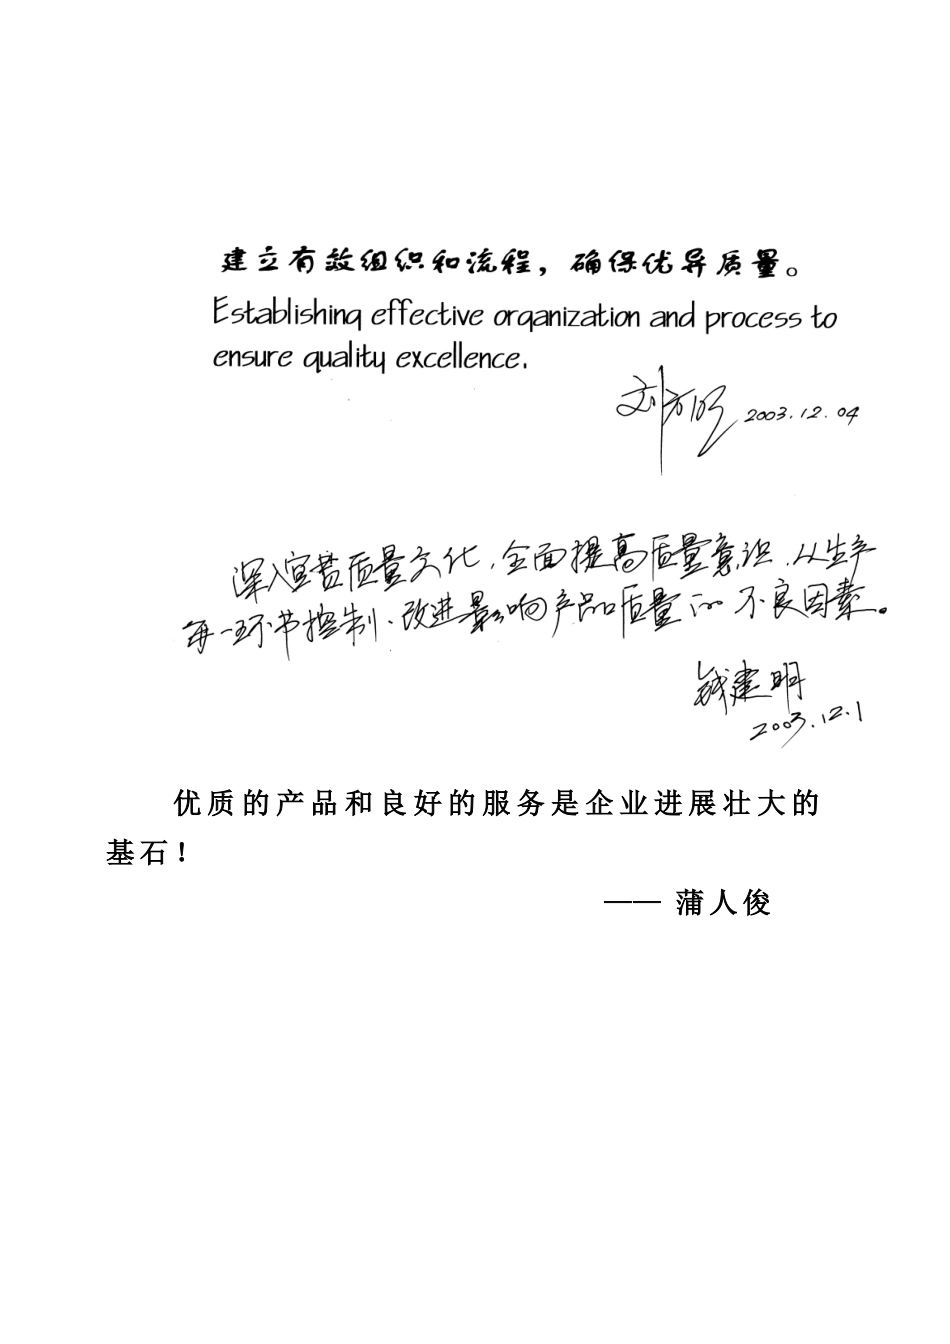 建立有效组织和流程，确保优异质量。
Establishing effective organization and process to
ensure quality excellence.
刘方明 2003.12.04
深入宣贯质量文化，全面提高质量意识，从生产
每一环节控制、改进影响产品质量的不良因素。
钱建明
2003.12.1
优质的产品和良好的服务是企业进展壮大的
基石！
—— 蒲人俊